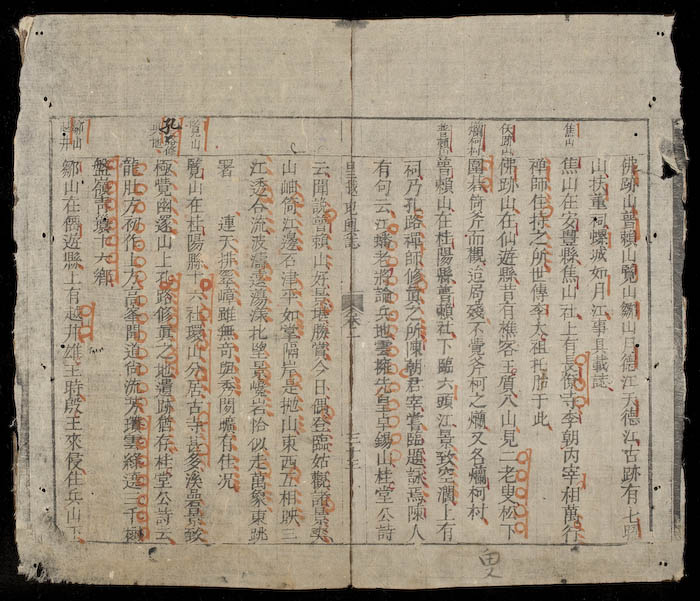 佛跡山普賴山覽山鄒山月德江天德江古跡有七曠
山扶董祠螺城如月江事具載誌
焦山
焦山在安豐縣焦山社上有長僊寺李朝內宰相萬行
禪師住持之所世傳李太祖托胎于此
佛跡山
佛跡山在仙遊縣昔有樵客王質入山見二老叟松下
爛柯村
圍碁倚斧而觀迨局殘不覺斧柯之爛又名爛柯村
普賴山
普賴山在桂陽縣普賴社下臨六頭江景致空濶上有
祠乃孔路禪師修真之所陳朝君宰嘗臨題詠焉陳人
有句云江蟠老將論兵地雲擁先皇卓錫山桂堂公詩
皇越地輿誌
卷一
三十三
云聞說普賴山好景堪勝賞今日偶登臨姑觀諸景爽
山岫筒江邊石津平如掌隔岸是拋山東西互相映三
江透合流波濤還蕩深北望景巉岩恰似走萬象東眺
署 連天排翠嶂雖無奇與秀閑曠有佳况
覽山
覽山在桂陽縣十六社環山分居古寺甚多溪磵景致
孔路修真地
極覺幽邃山上孔路修真之地遺跡猶存桂堂公詩云
龍肚方初作上方高峯聞道尚流芳瓊雲繞遶三千樹
盤嶺青縈十六鄉
鄒山
越井
鄒山在僊遊縣上有越井雄王時殷王來侵住兵山下